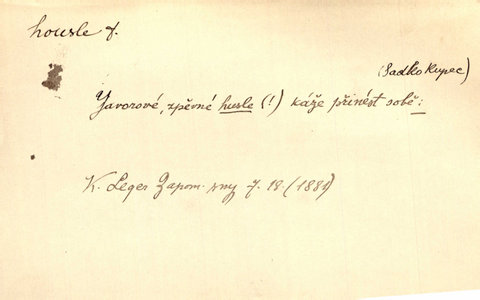 housle f.
(Sadko kupec)
Javorové, zpěvné husle (!) káže přinést sobě:
K. Leger Zapom. sny 7. 18. (1889)